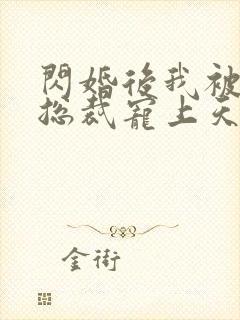 閃婚後我被
總裁寵上天
金街